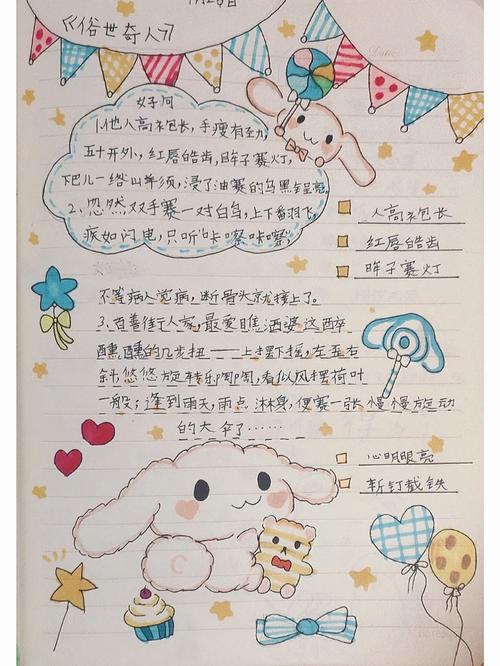 1月20日
《俗世奇人》
好子问
1.他人高袍长，手瘦有劲，
五十开外，红唇皓齿，眸子赛灯，
下巴儿一绺山羊须，浸了油赛的乌黑锃亮。
2、忽然双手赛一对白鸟，上下翻飞，
疾如闪电，只听"咔嚓咔嚓"，
不等病人觉病，断骨头就接上了。
3、百善街人家，最爱瞧酒婆这醉
醺醺的几步扭——上摆下摇，左歪右
斜，悠悠旋转乐陶陶，看似风摆荷叶
一般；逢到雨天，雨点淋身，便赛一张慢慢旋动
的大伞了……
人高袍长
红唇皓齿
眸子赛灯
心明眼亮
斩钉截铁